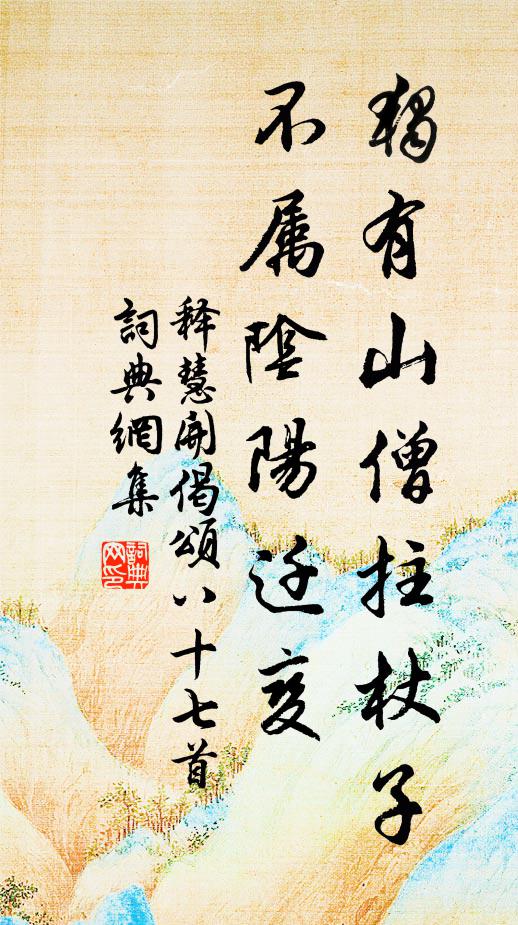 獨有山僧拄杖子
不属陰陽迁变
释慧開偈頌八十七首
詞典網集
詞典网印